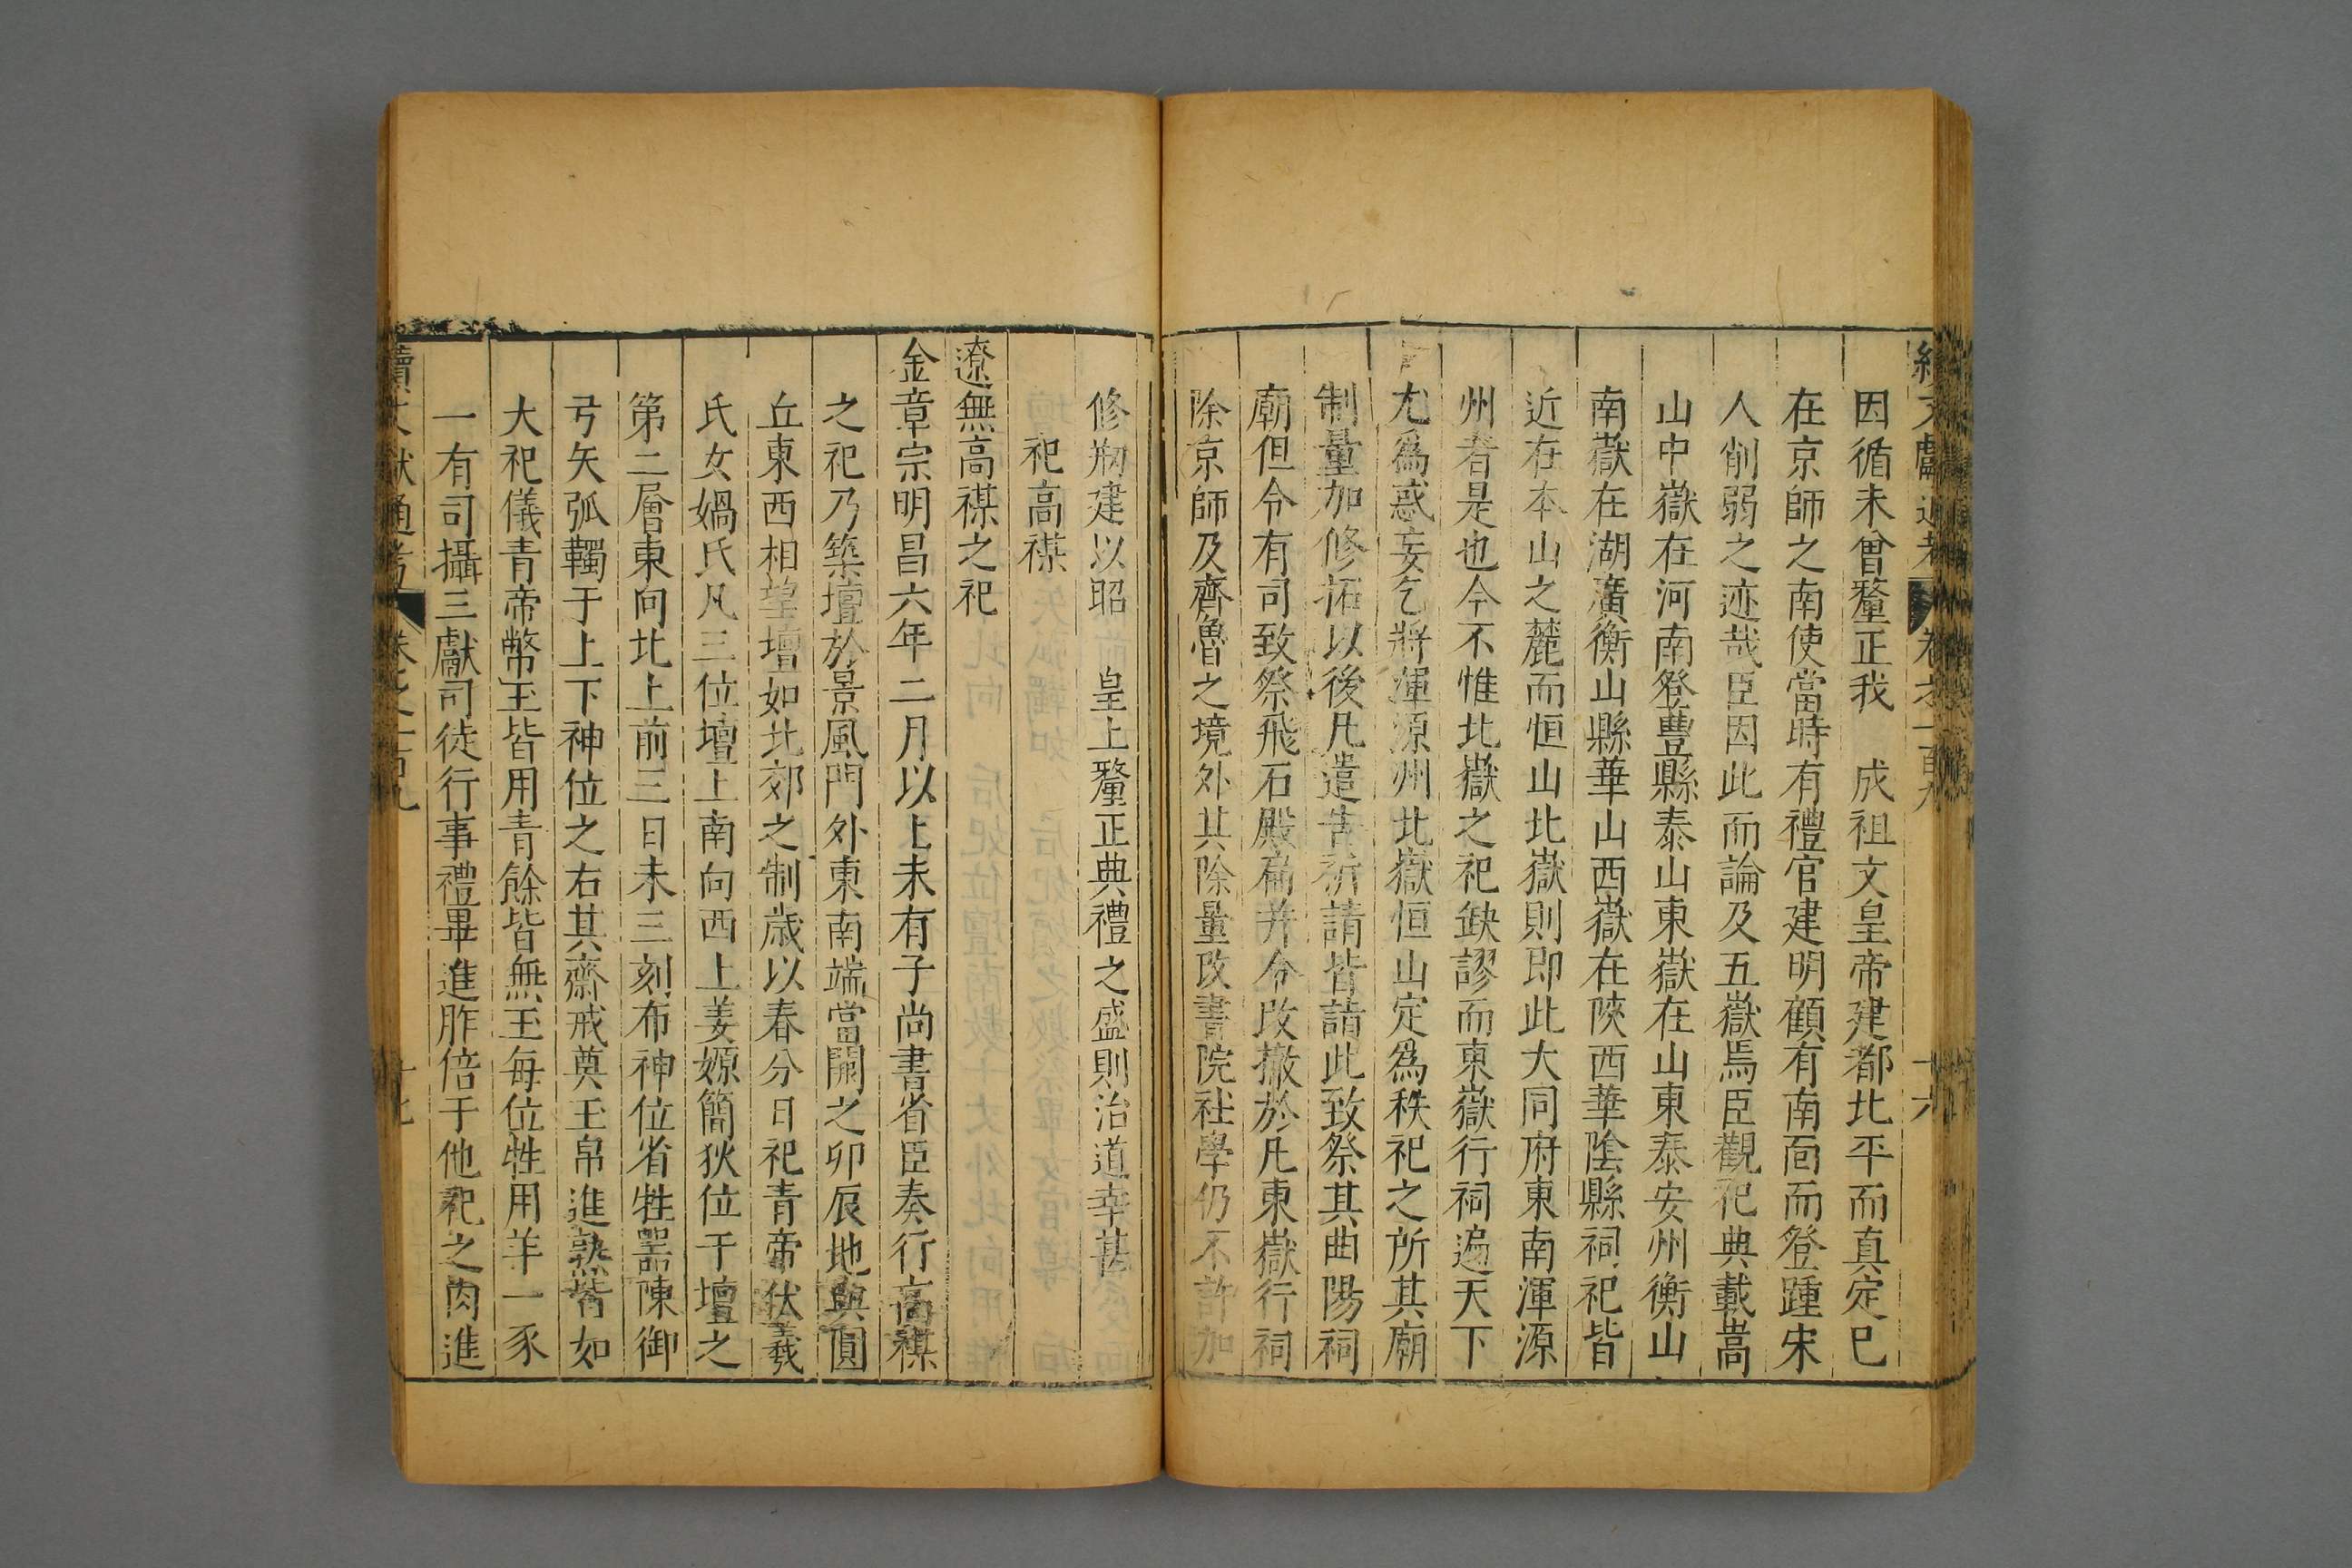 因循未曾釐正我　成祖文皇帝建都北平而真定已
在京師之南使當時有禮官建明顧有南面而登踵宋
人削弱之迹哉臣因此而論及五嶽焉臣觀祀典載嵩
山中嶽在河南登豐縣泰山東嶽在山東泰安州衡山
南嶽在湖廣衡山縣華山西嶽在陝西華陰縣祠祀皆
近在本山之麓而恒山北嶽則即此大同府東南渾源
州者是也今不惟北嶽之祀缺謬而東嶽行祠遍天下
尤為惑妄乞將渾源州北嶽恒山定為秩祀之所其廟
制量加修拓以後凡遣告祈請皆詣此致祭其曲陽祠
廟但令有司致祭飛石殿扁并令改撤於凡東嶽行祠
除京師及齊魯之境外其除量改書院社學仍不許加
修刱建以昭　皇上釐正典禮之盛則治道幸甚
祀高禖
遼無高禖之祀
金章宗明昌六年二月以上未有子尚書省臣奏行高禖
之祀乃築壇於景風門外東南端當闕之卯辰地與圓
丘東西相望壇如北郊之制歲以春分日祀青帝伏羲
氏女媧氏凡三位壇上南向西上姜嫄簡狄位于壇之
第二層東向北上前三日未三刻布神位省牲器陳御
弓矢弧韣于上下神位之右其齋戒奠玉帛進熟皆如
大祀儀青帝幣玉皆用青餘皆無玉每位牲用羊一豕
一有司攝三獻司徒行事禮畢進胙倍于他祀之肉進
續文獻通考　卷之一百九